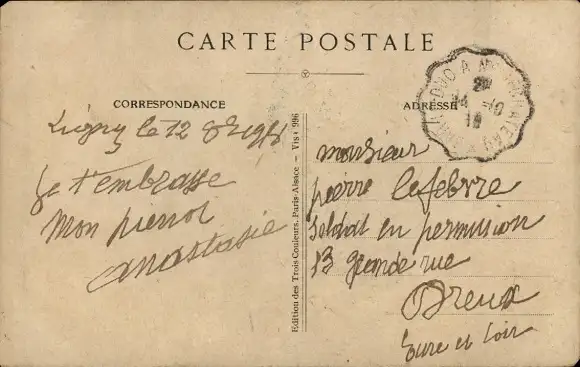 CARTE POSTALE
CORRESPONDANCE
Ligny le 12 8re 1918
Je t'embrasse
Mon pierrot
anastasie
Edition des Trois Couleurs. Paris-Alsace — Visé 996
ADRESSE
24 -10
18
monsieur
pierre lefebvre
soldat en permission
13 grande rue
Dreux
Eure et Loir